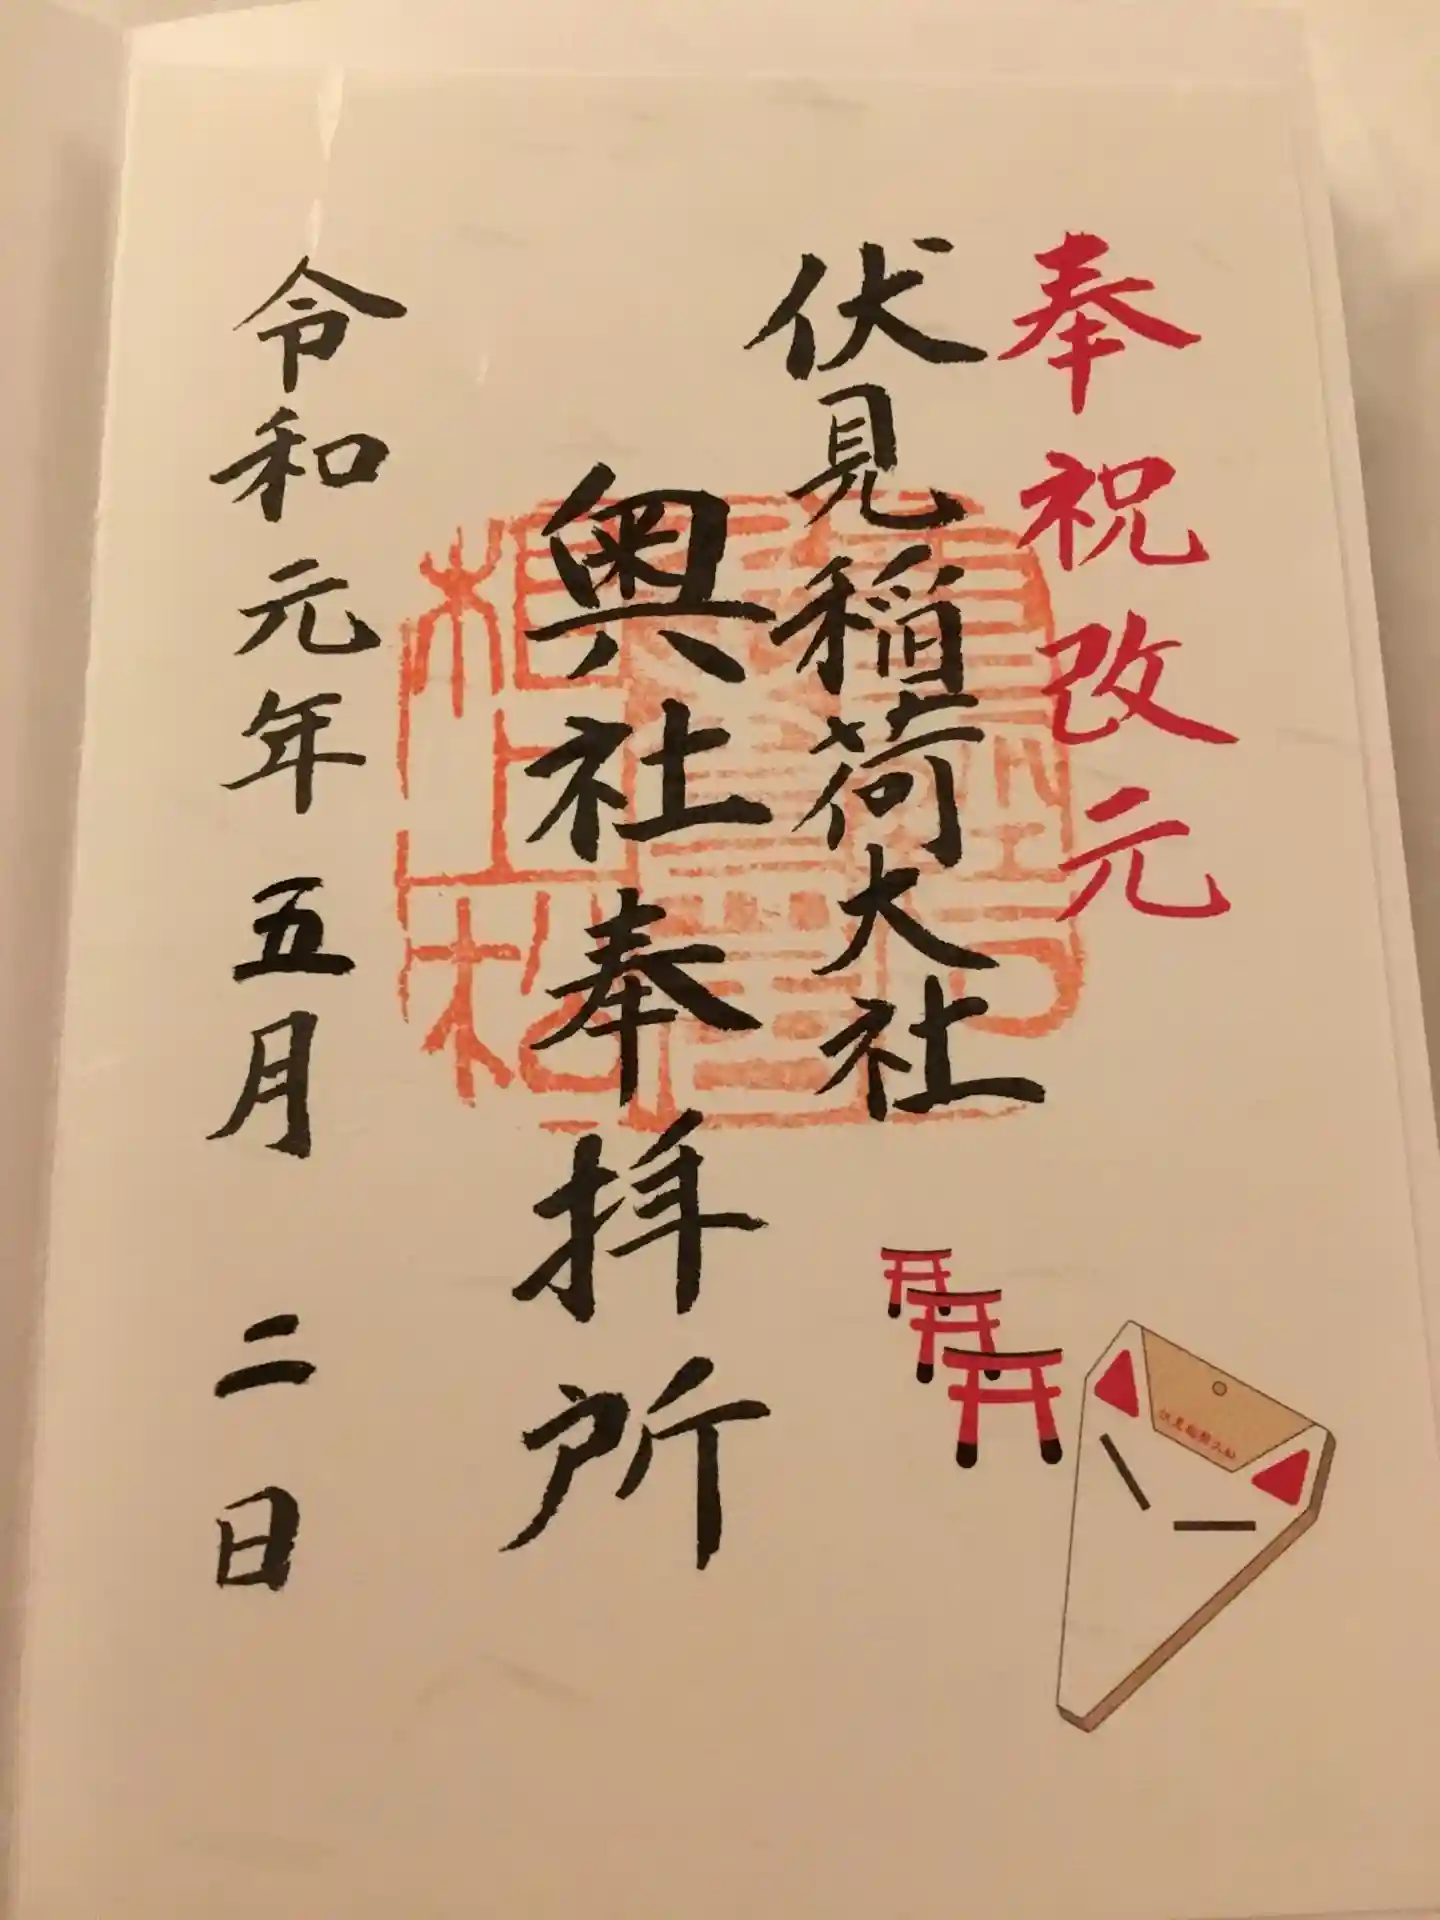 奉祝改元
伏見稲荷大社
奥社奉拝所
令和元年五月二日
伏見稲荷大社